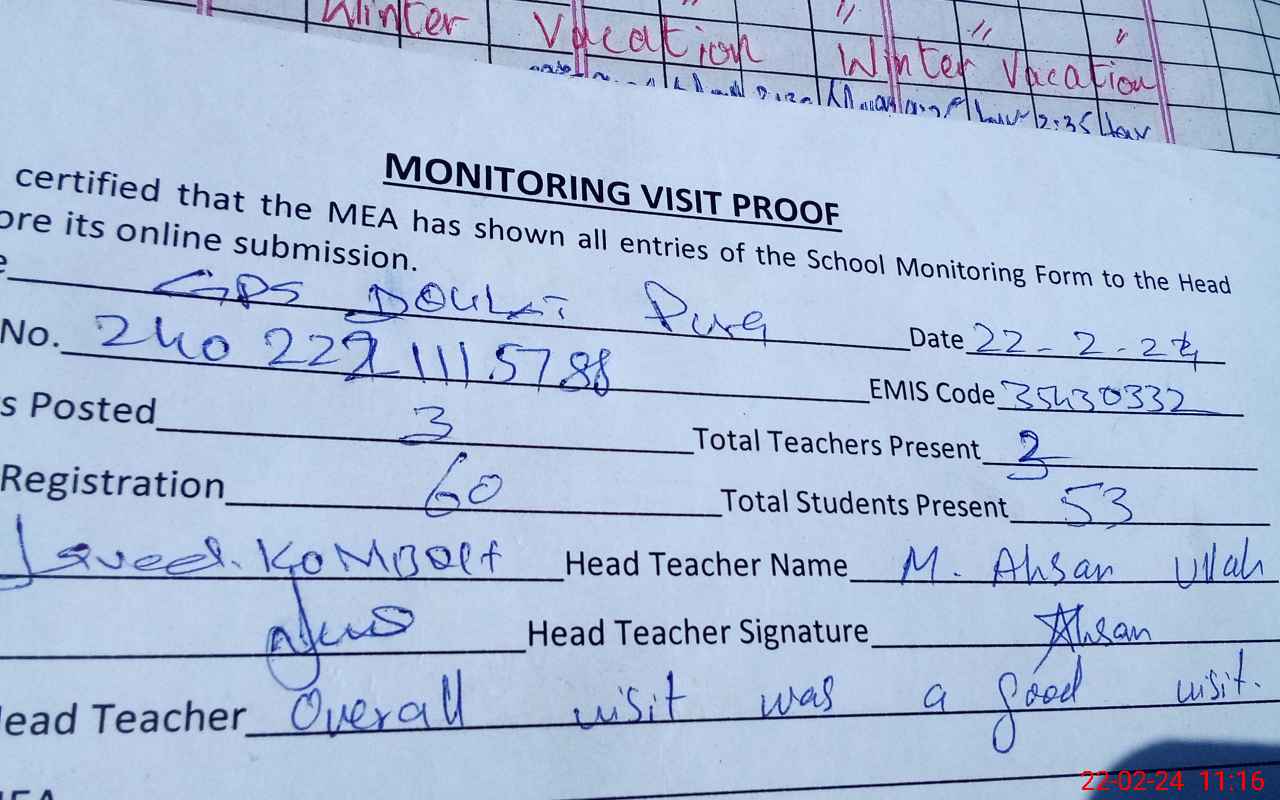 Winter Vacation Winter Vacation
2:35
MONITORING VISIT PROOF
certified that the MEA has shown all entries of the School Monitoring Form to the Head
ore its online submission.
e GPS DOULAT Pura Date 22-2-24
No. 240 222 111 5788 EMIS Code 35430332
s Posted 3 Total Teachers Present 3
Registration 60 Total Students Present 53
Javeed. KOMBOH Head Teacher Name M. Ahsan Ullah
Head Teacher Signature Ahsan
ead Teacher Overall visit was a good visit.
MEA
22-02-24 11:16